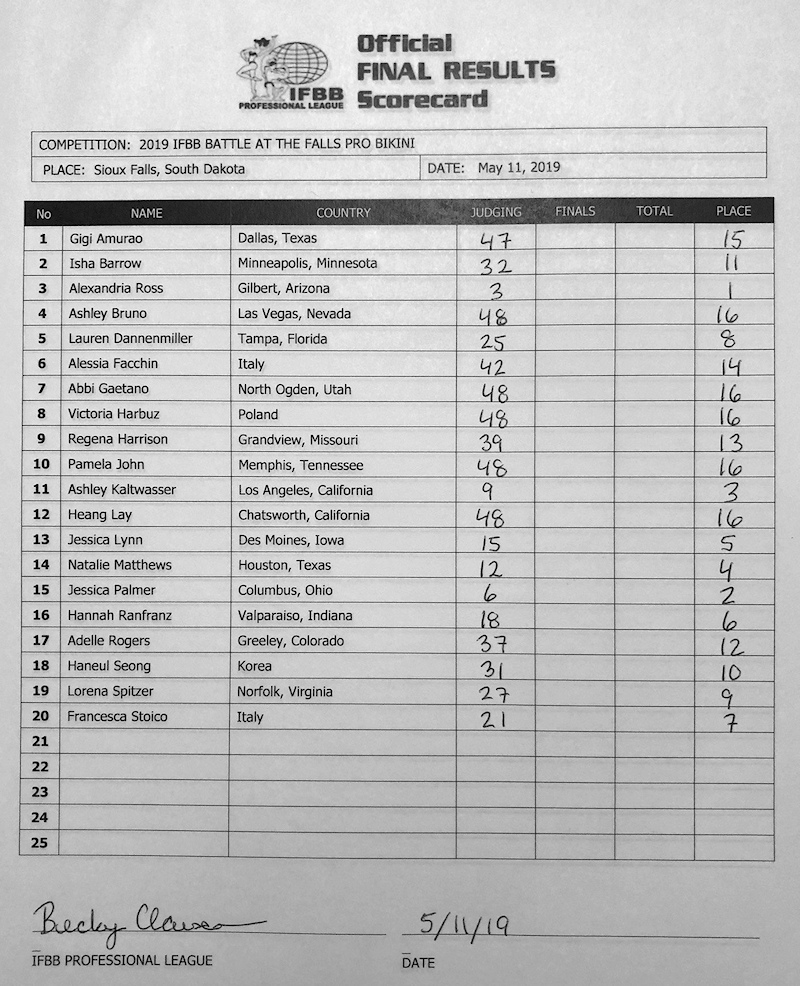 Official
FINAL RESULTS
Scorecard
IFBB
PROFESSIONAL LEAGUE
COMPETITION: 2019 IFBB BATTLE AT THE FALLS PRO BIKINI
PLACE: Sioux Falls, South Dakota DATE: May 11, 2019
No NAME COUNTRY JUDGING FINALS TOTAL PLACE
1 Gigi Amurao Dallas, Texas 47 15
2 Isha Barrow Minneapolis, Minnesota 32 11
3 Alexandria Ross Gilbert, Arizona 3 1
4 Ashley Bruno Las Vegas, Nevada 48 16
5 Lauren Dannenmiller Tampa, Florida 25 8
6 Alessia Facchin Italy 42 14
7 Abbi Gaetano North Ogden, Utah 48 16
8 Victoria Harbuz Poland 48 16
9 Regena Harrison Grandview, Missouri 39 13
10 Pamela John Memphis, Tennessee 48 16
11 Ashley Kaltwasser Los Angeles, California 9 3
12 Heang Lay Chatsworth, California 48 16
13 Jessica Lynn Des Moines, Iowa 15 5
14 Natalie Matthews Houston, Texas 12 4
15 Jessica Palmer Columbus, Ohio 6 2
16 Hannah Ranfranz Valparaiso, Indiana 18 6
17 Adelle Rogers Greeley, Colorado 37 12
18 Haneul Seong Korea 31 10
19 Lorena Spitzer Norfolk, Virginia 27 9
20 Francesca Stoico Italy 21 7
21
22
23
24
25
Becky 5/11/19
IFBB PROFESSIONAL LEAGUE DATE